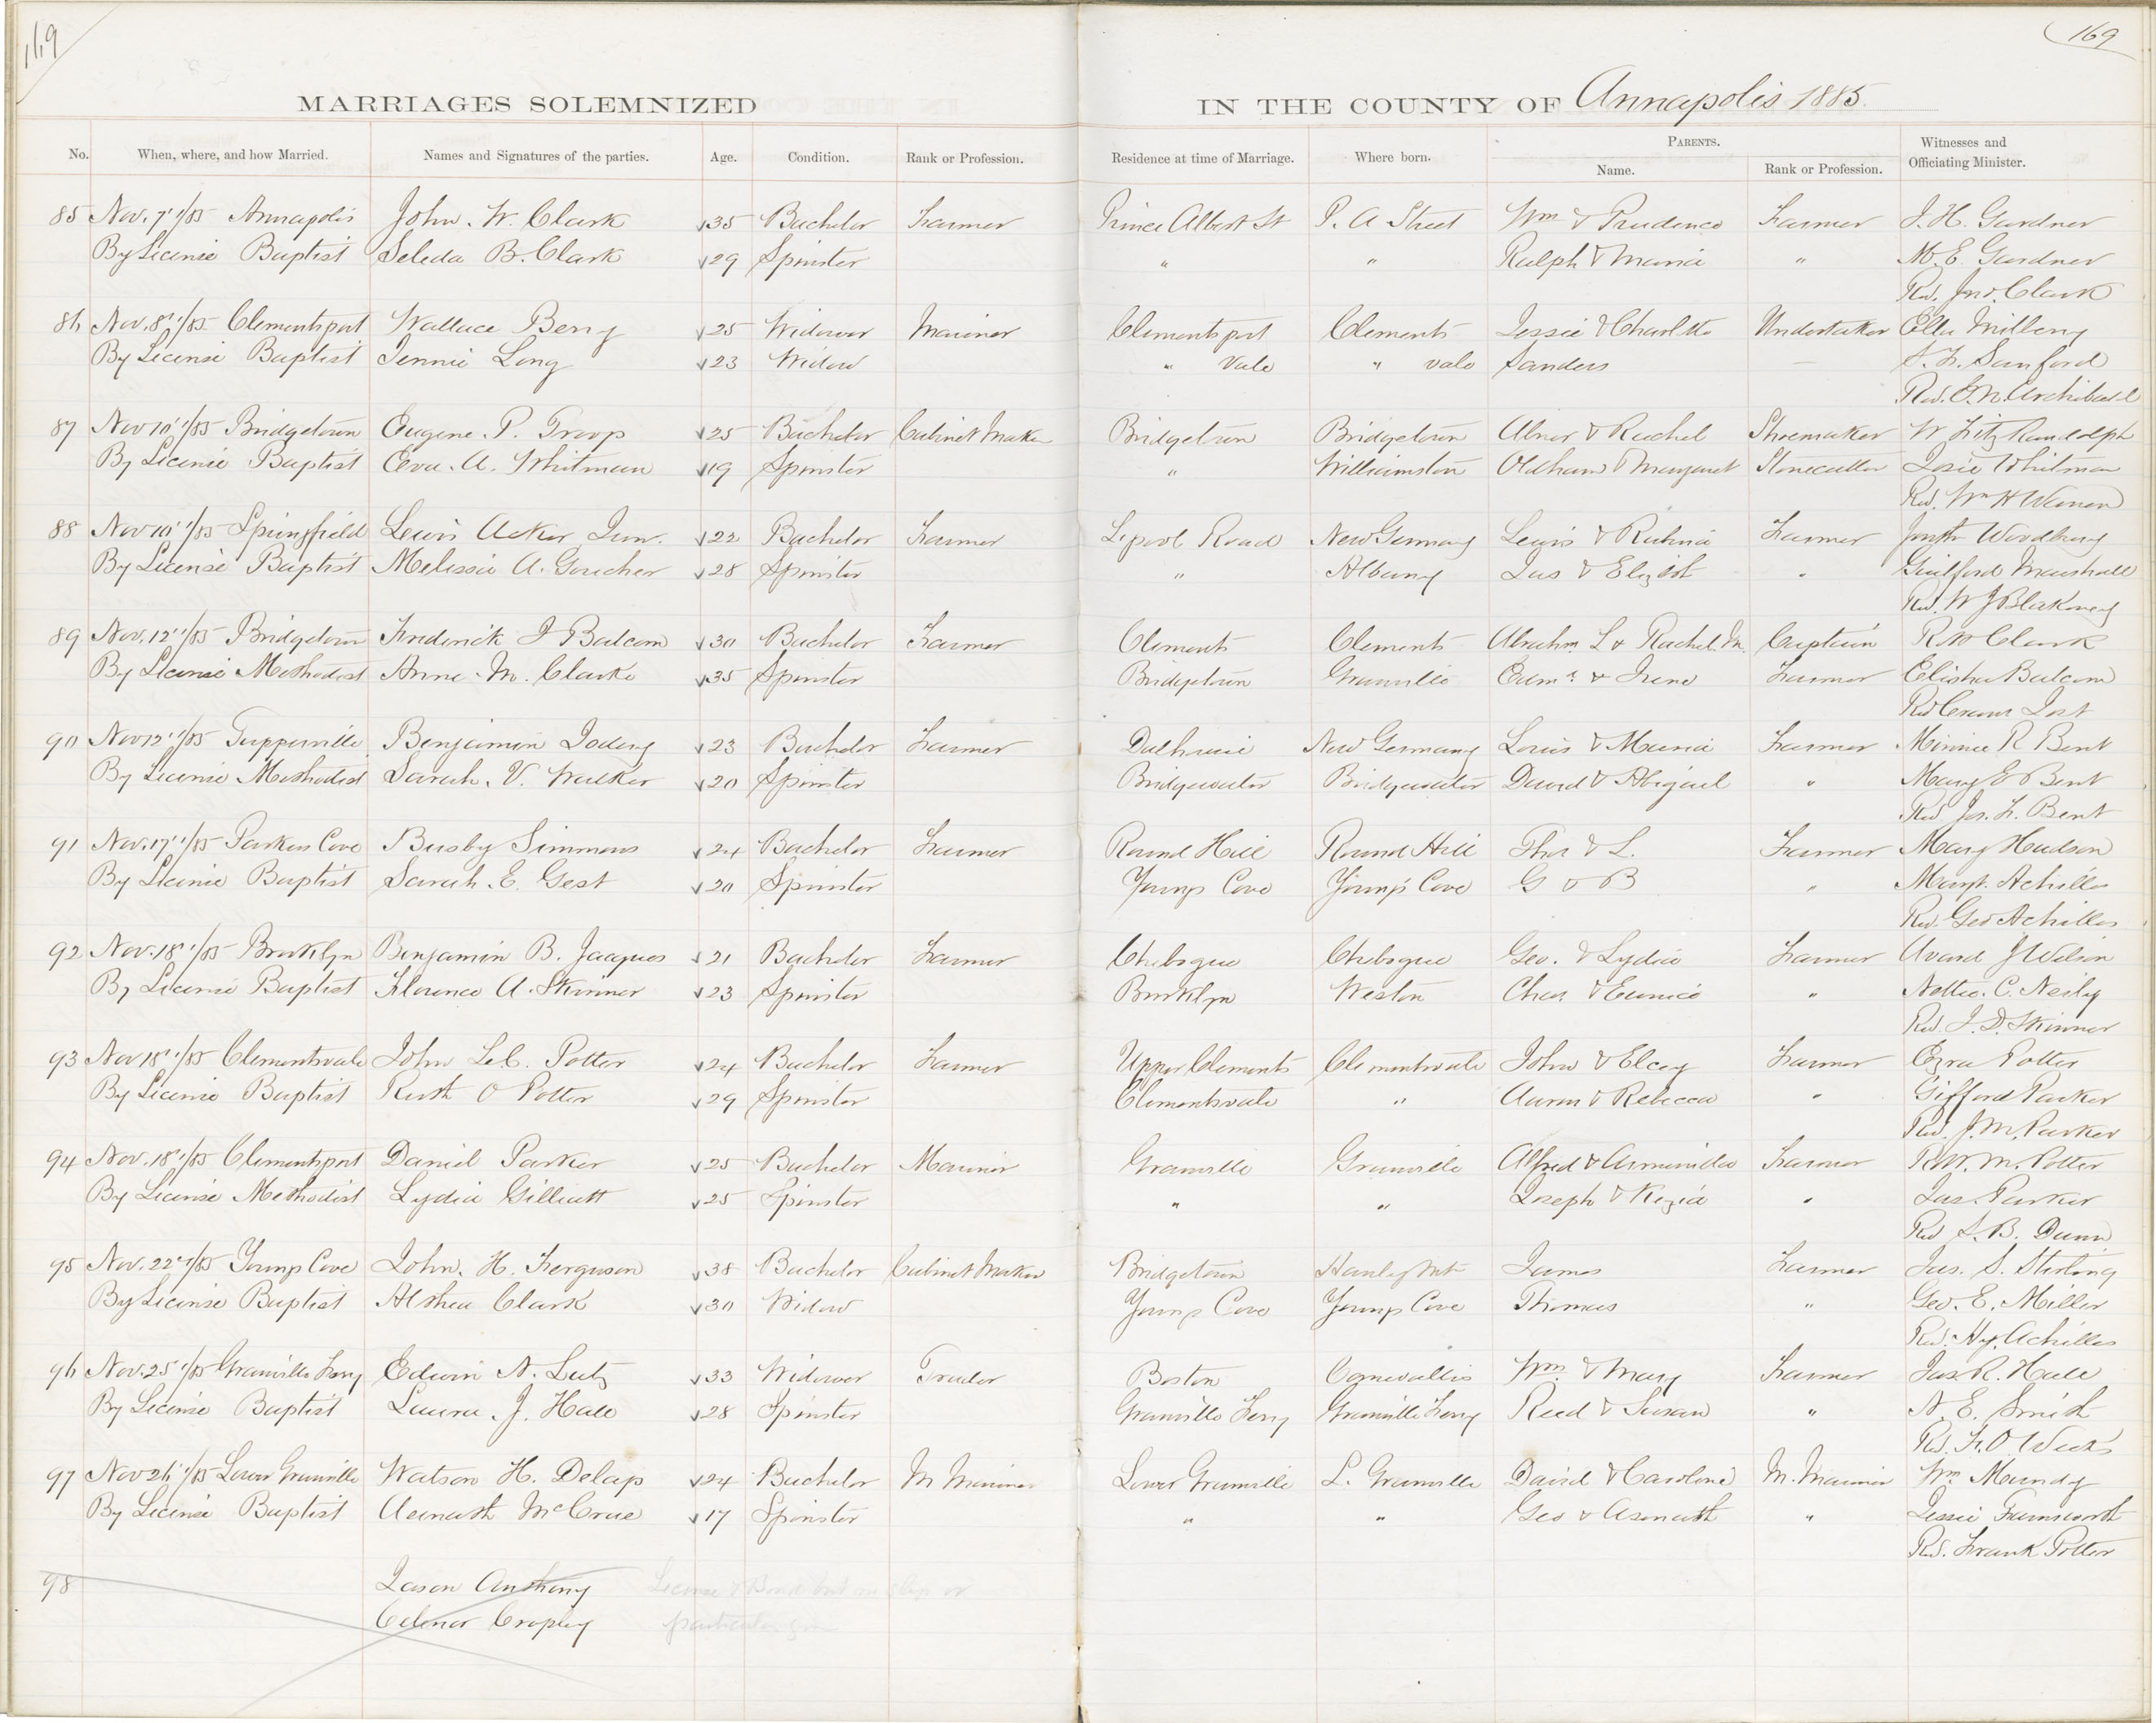 169
169
MARRIAGES SOLEMNIZED IN THE COUNTY OF Annapolis 1885.
No. When, where, and how Married. Names and Signatures of the parties. Age. Condition. Rank or Profession. Residence at time of Marriage. Where born. PARENTS. Name. Rank or Profession. Witnesses and Officiating Minister.
85 Nov. 7"/85 Annapolis John. W. Clark 35 Bachelor Farmer Prince Albert St P. A Street Wm & Prudence Farmer J. H. Gardner
By License Baptist Seleda B. Clark 29 Spinster " " Ralph & Maria " M. E. Gardner
Rd. Jno. Clark
86 Nov. 8"/85 Clementsport Wallace Berry 25 Widower Mariner Clementsport Clements Jessie & Charltte Undertaker Ella Millbery
By License Baptist Jennie Long 23 Widow " Vale " vale Sanders — Sanford
Rd. Archibald
87 Nov 10"/85 Bridgetown Eugene. P. Troop 25 Bachelor Cabinet Maker Bridgetown Bridgetown Abner & Rachel Shoemaker W Fitz Randolph
By License Baptist Eva. A. Whitman 19 Spinster " Williamston Oldham & Margaret Stonecutter Josie Whitman
Rd. Wm H Warren
88 Nov 10"/85 Springfield Lewis Acker Jun. 22 Bachelor Farmer L'pool Road New Germany Lewis & Farmer Woodbury
By License Baptist Melissia A. Goucher 28 Spinster " Albany Jas & Elizbt " Guilford Marshall
Rd. W J Blakeney
89 Nov. 12"/85 Bridgetown Frederick J Balcom 30 Bachelor Farmer Clements Clements Abrahm L & Rachel. M. Captain R W Clark
By License Methodist Anne M. Clarke 35 Spinster Bridgetown Granville & Irene Farmer Elisha Balcom
Rd Jost
90 Nov 12"/85 Tupperville Benjamin Joderg 23 Bachelor Farmer Dalhousie New Germany Louis & Maria Farmer Minnie R Bent
By License Methodist Sarah. V. Walker 20 Spinster Bridgewater Bridgewater David & Abigail " Mary E Bent
Rd Jos. F. Bent
91 Nov. 17"/85 Parkers Cove Busby Simmons 24 Bachelor Farmer Round Hill Round Hill Thos & L. Farmer Mary Hudson
By License Baptist Sarah. E. Gest 20 Spinster Youngs Cove Young's Cove G & B " Margt. Achilles
Rd. Geo Achilles
92 Nov. 18"/85 Brooklyn Benjamin B. Jacques 21 Bachelor Farmer Chebogue Chebogue Geo. & Lydia Farmer Avard J Wilson
By License Baptist Florence A. Skinner 23 Spinster Brooklyn Weston Chas & Eunice " Nettie. C. Neily
Rd. J. D. Skinner
93 Nov 18"/85 Clementsvale John LeC. Potter 24 Bachelor Farmer Upper Clements Clementsvale John & Elcey Farmer Ezra Potter
By License Baptist Ruth O Potter 29 Spinster Clementsvale " Aaron & Rebecca " Gifford Parker
Rd. J. M. Parker
94 Nov. 18"/85 Clementsport Daniel Parker 25 Bachelor Mariner Granville Granville Alfred & Armenilla Farmer R. W. M. Potter
By License Methodist Lydia Gilliatt 25 Spinster " " Joseph & Kezia " Jas. Parker
Rd S. B. Dunn
95 Nov. 22"/85 Youngs Cove John. H. Ferguson 38 Bachelor Cabinet Maker Bridgetown Hanley Mt James Farmer Jas. S. Sterling
By License Baptist Althea Clark 30 Widow Youngs Cove Youngs Cove Thomas " Geo. E. Miller
Rd. Hy. Achilles
96 Nov. 25"/85 Granville Ferry Edwin N. Lutz 33 Widower Trader Boston Cornwallis Wm. & Mary Farmer Jas R. Hall
By License Baptist Laura. J. Hall 28 Spinster Granville Ferry Granville Ferry Reed & Susan " N. E. Smith
Rd. F. O Weeks
97 Nov 26"/85 Lower Granville Watson H. Delap 24 Bachelor M Mariner Lower Granville L. Granville David & Caroline M. Mariner Wm Mundy
By License Baptist Asenath McCrae 17 Spinster " " Geo & Asenath " Jessie Farnsworth
Rd. Frank Potter
98 Jason Anthony License & Bond but no slip or
Elenor Cropley particulars